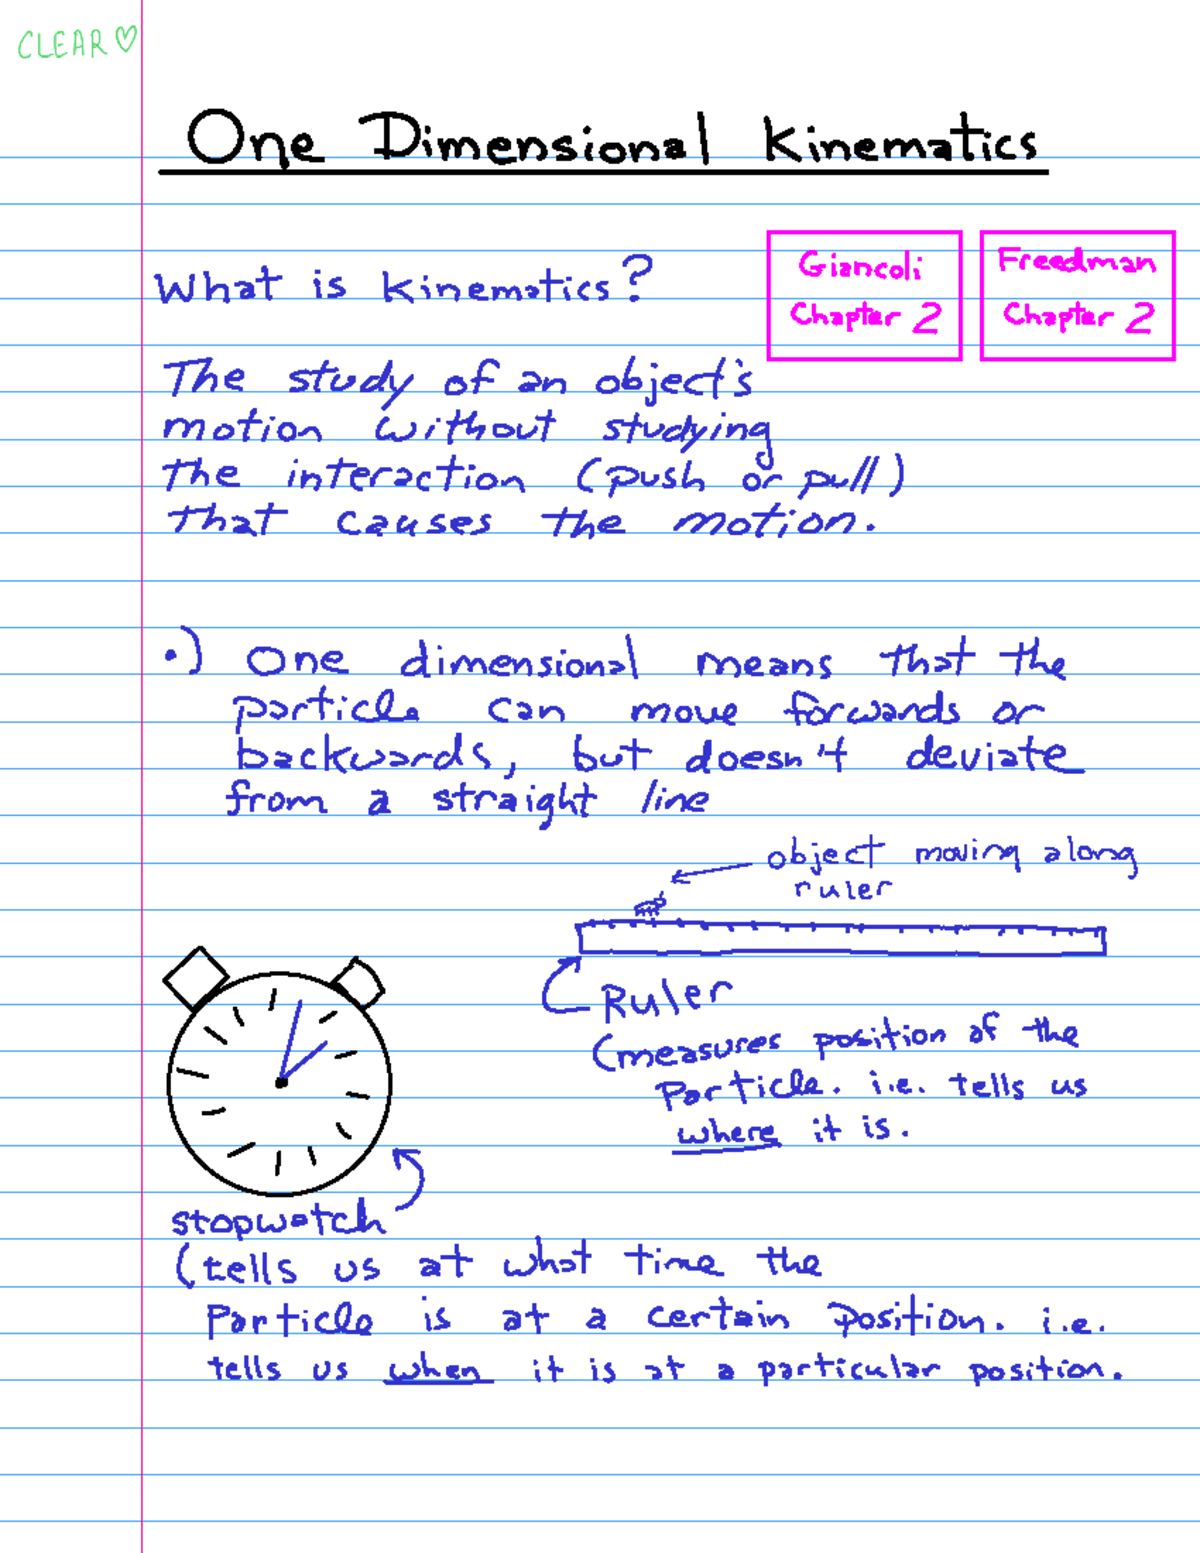 CLEAR♡
One Dimensional Kinematics
What is kinematics?
Giancoli
Chapter 2
Freedman
Chapter 2
The study of an object's
motion without studying
the interaction (push or pull)
that causes the motion.
•) One dimensional means that the
particle can move forwards or
backwards, but doesn't deviate
from a straight line
object moving along
ruler
Ruler
(measures position of the
Particle. i.e. tells us
where it is.
stopwatch
(tells us at what time the
Particle is at a certain position. i.e.
tells us when it is at a particular position.